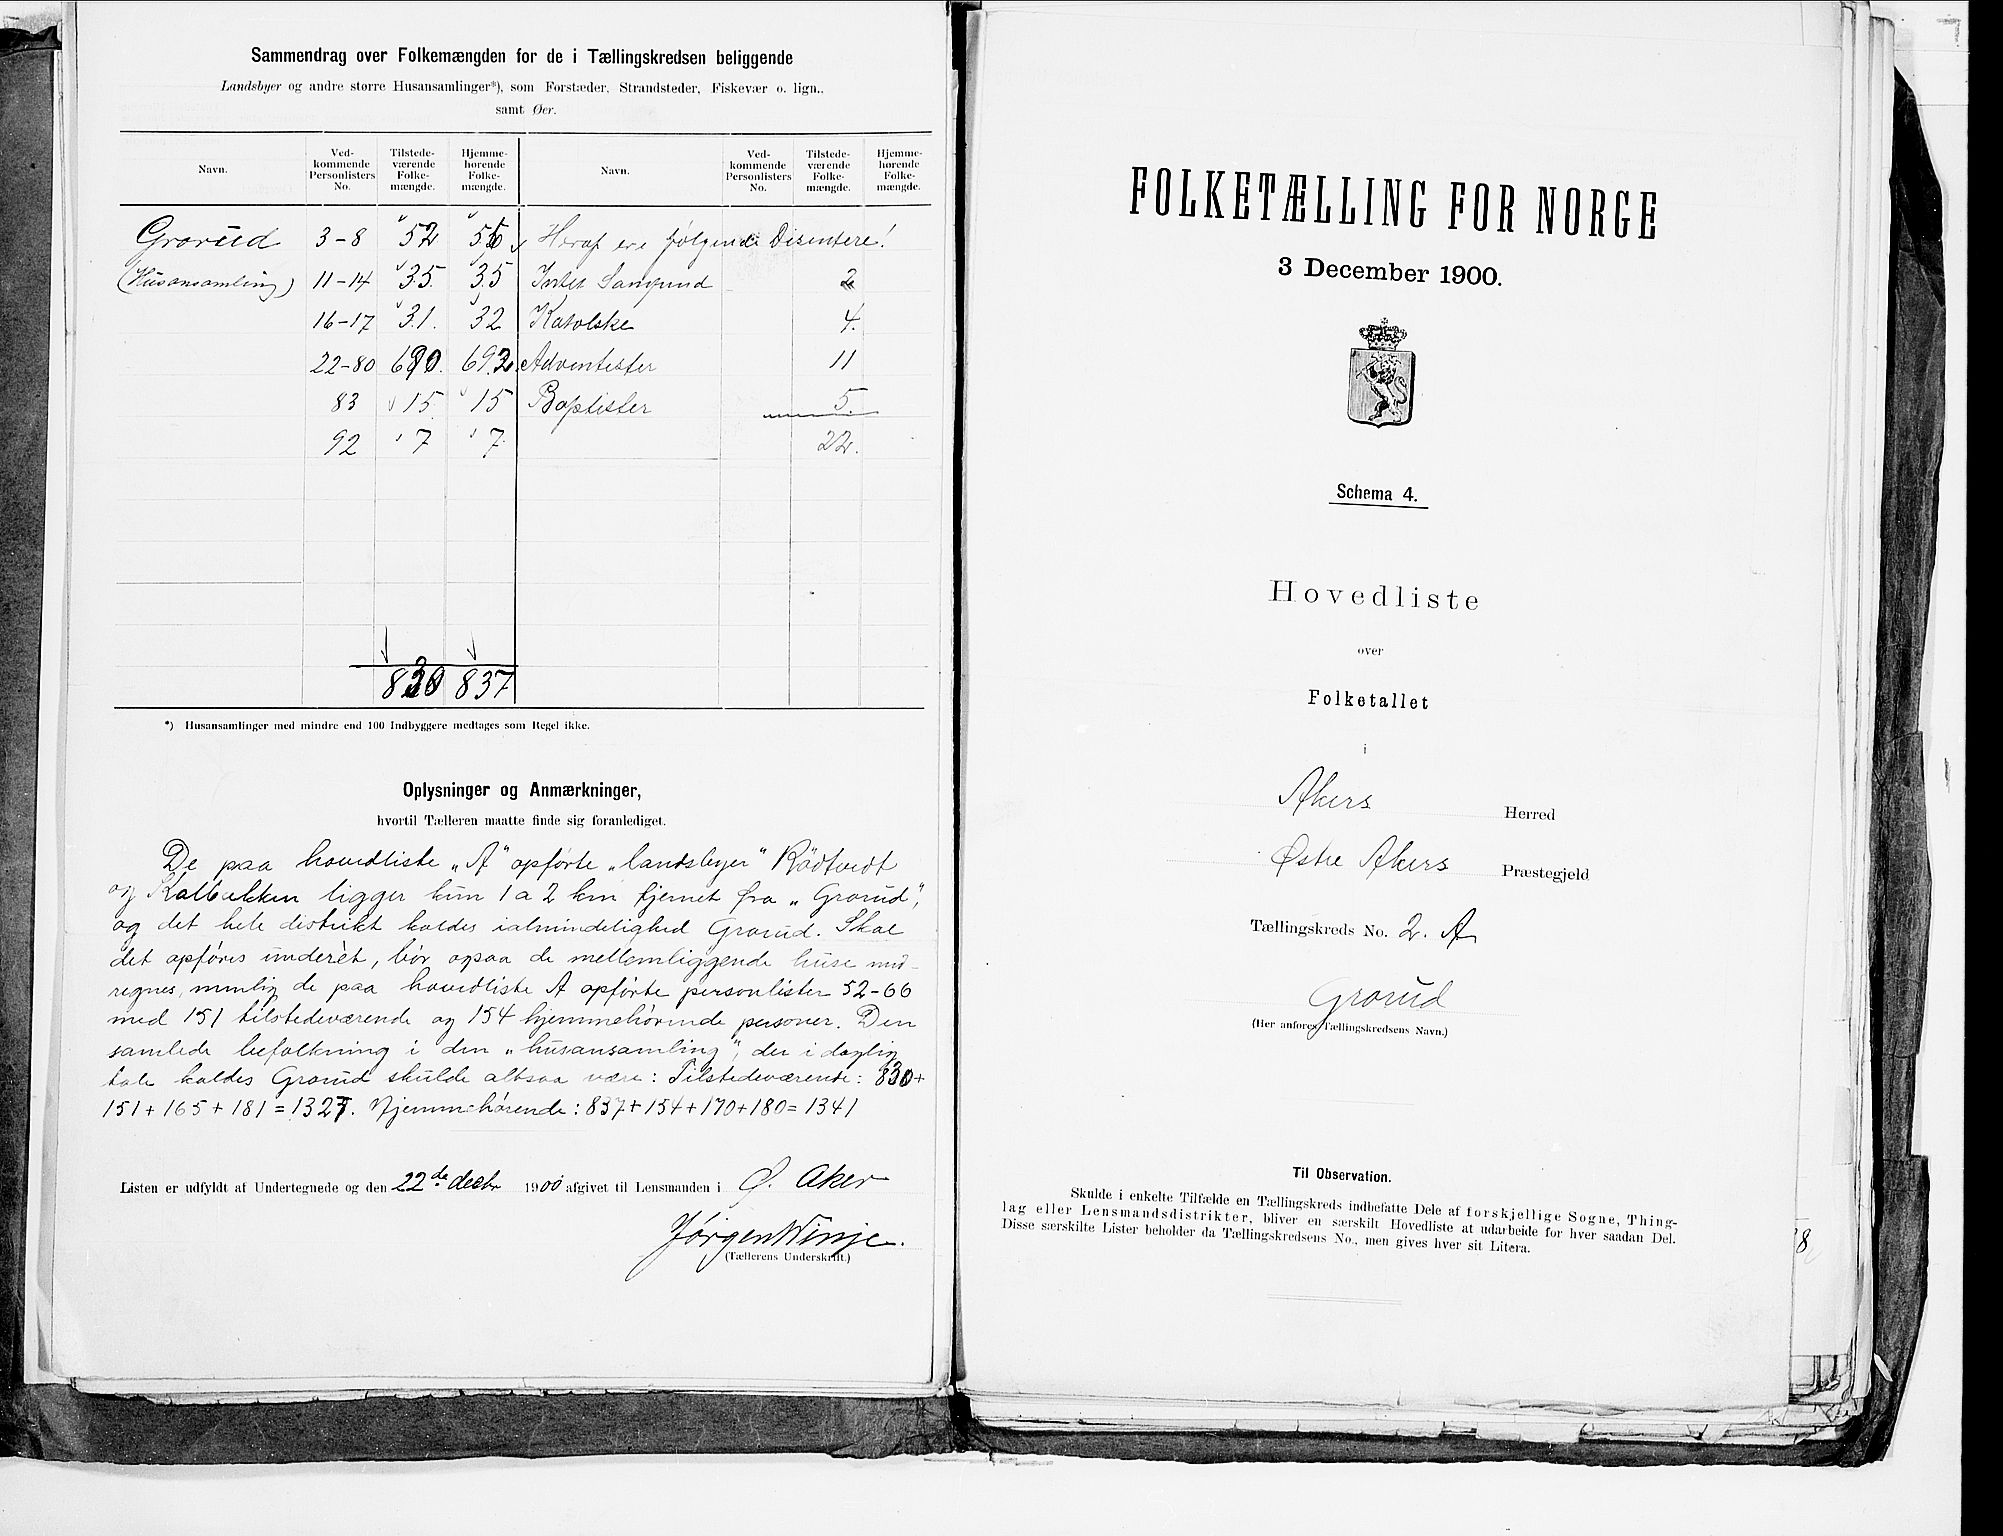 Sammendrag over Folkemængden for de i Tællingskredsen beliggende
Landsbyer og andre større Husansamlinger*), som Forstæder, Strandsteder, Fiskevær o. lign.,
samt Øer.
Navn. Ved-kommende Personlisters No. Tilstede-værende Folke-mængde. Hjemme-hørende Folke-mængde. Navn. Ved-kommende Personlisters No. Tilstede-værende Folke-mængde. Hjemme-hørende Folke-mængde.
Grorud 3-8 52 56 Heraf ere følgende Disentere!
(Husansamling) 11-14 35. 35 2
16-17 31. 32 Katolske 4.
22-80 690. 692. Adventister 11
83 15. 15 Baptister 5.
92 7 7. 22.
830 837
*) Husansamlinger med mindre end 100 Indbyggere medtages som Regel ikke.
Oplysninger og Anmærkninger,
hvortil Tælleren maatte finde sig foranlediget.
De paa hovedliste „A" opførte „landsbyer" Rödtvedt
og Kalbakken ligger kun 1 a 2 km fjernet fra „Grorud",
og det hele distrikt kaldes ialmindelighed Grorud. Skal
det opføres underét, bør ogsaa de mellemliggende huse med-
regnes, nemlig de paa hovedliste A opførte personlister 52-66
med 151 tilstedeværende og 154 hjemmehørende personer. Den
samlede befolkning i den „husansamling", der i daglig
tale kaldes Grorud skulde altsaa være: Tilstedeværende: 830+
151+165+181=1327. Hjemmehørende: 837+154+170+180=1341
Listen er udfyldt af Undertegnede og den 22de decbr 1900 afgivet til Lensmanden i Ø. Aker
Jørgen Winje.
(Tællerens Underskrift.)
FOLKETÆLLING FOR NORGE
3 December 1900.
Schema 4.
Hovedliste
over
Folketallet
i
Akers Herred
Østre Akers Præstegjeld
Tællingskreds No. 2. A
Grorud
(Her anføres Tællingskredsens Navn.)
Til Observation.
Skulde i enkelte Tilfælde en Tællingskreds indbefatte Dele af forskjellige Sogne, Thing-
lag eller Lensmandsdistrikter, bliver en særskilt Hovedliste at udarbeide for hver saadan Del.
Disse særskilte Lister beholder da Tællingskredsens No., men gives hver sit Litera.